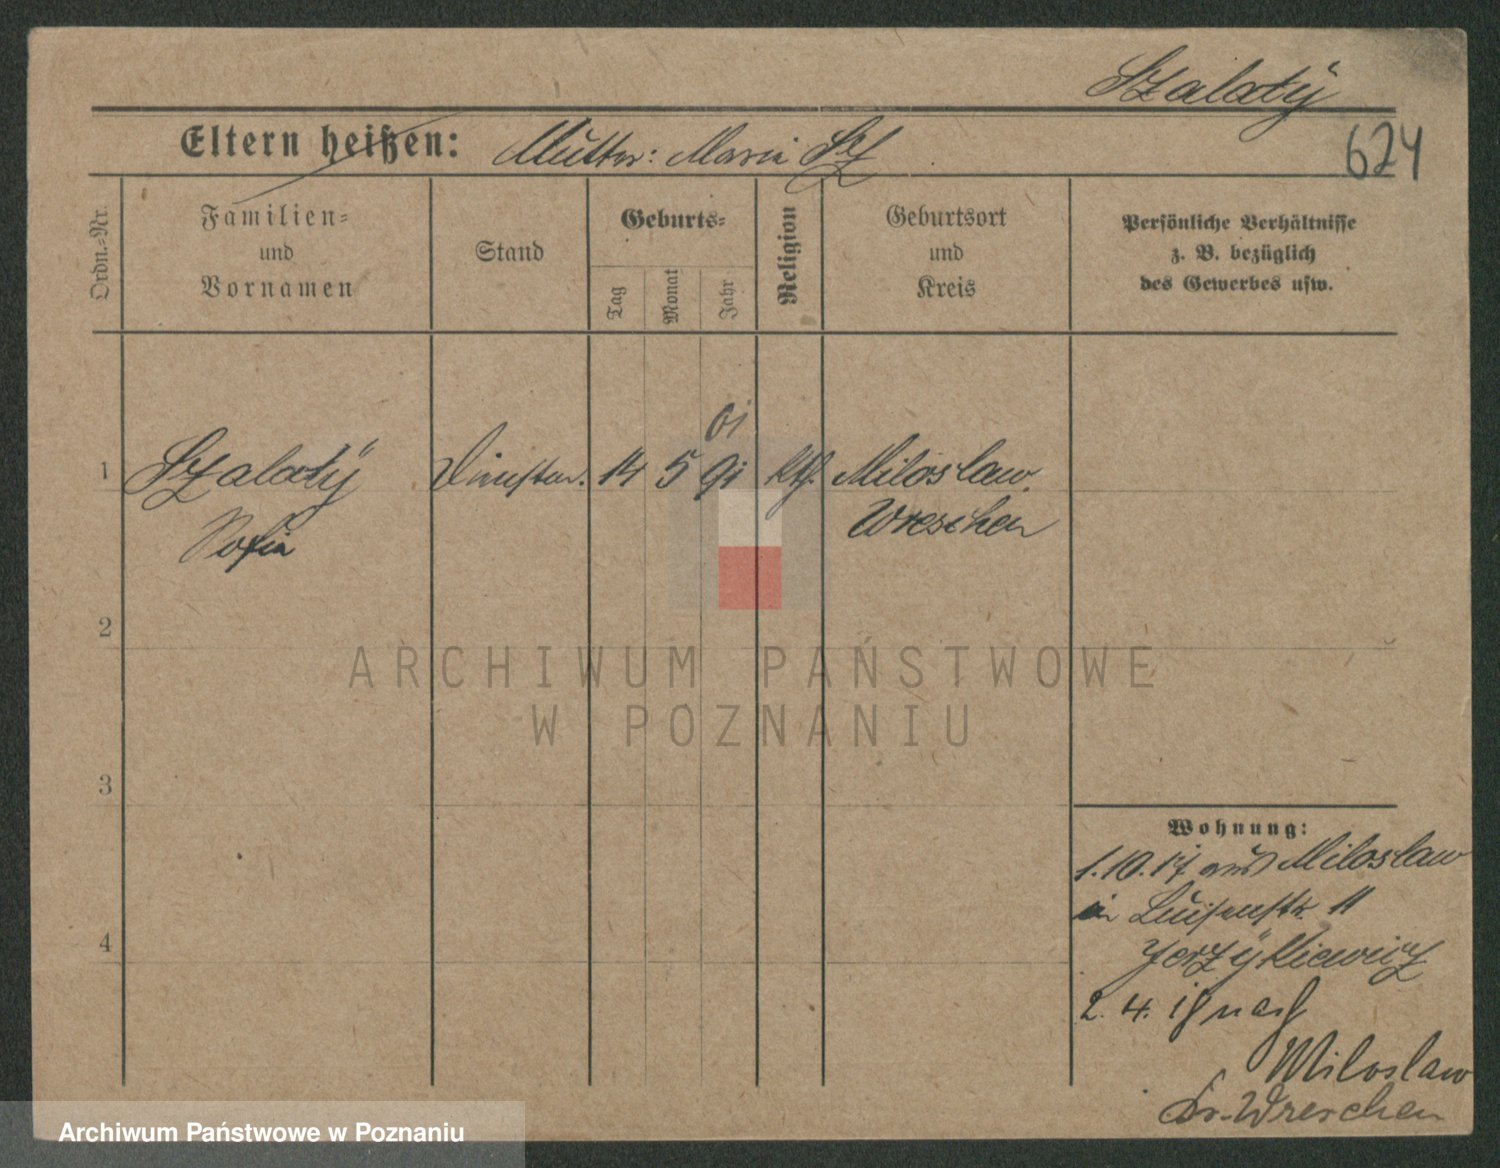 Szalatÿ
Eltern heißen: Mutter: Maria Sz
624
Ordn.=Nr.
Familien=
und
Vornamen
Stand
Geburts=
Tag
Monat
Jahr
Religion
Geburtsort
und
Kreis
Persönliche Verhältnisse
z. B. bezüglich
des Gewerbes usw.
01
1 Szalatÿ 14 5 91 kth. Miloslaw
Sofia Wreschen
2
3
4
ARCHIWUM PAŃSTWOWE
W POZNANIU
Wohnung:
1.10.17 aus Miloslaw
in Luisenstr. 11
Jerzÿkiewicz
2. 4. 18 nach
Miloslaw
Kr. Wreschen
Archiwum Państwowe w Poznaniu